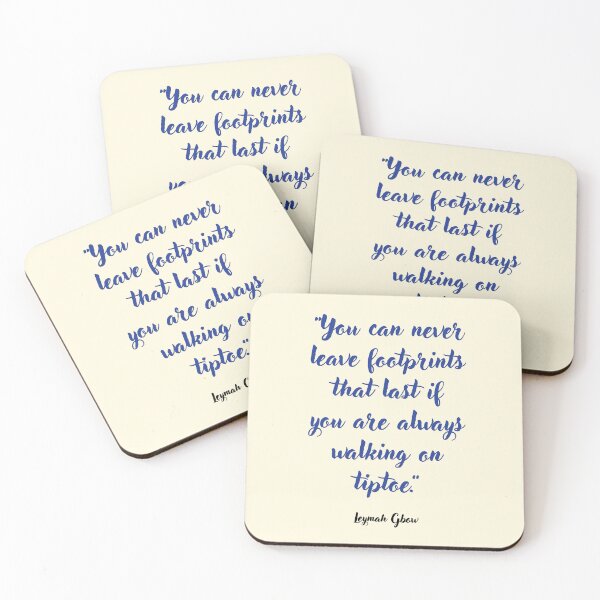 "You can never
leave footprints
that last if
always
"You can never
leave footprints
that last if
you are always
walking on
"You can never
leave footprints
that last if
you are always
walking on
tiptoe."
Leymah
"You can never
leave footprints
that last if
you are always
walking on
tiptoe."
Leymah Gbow